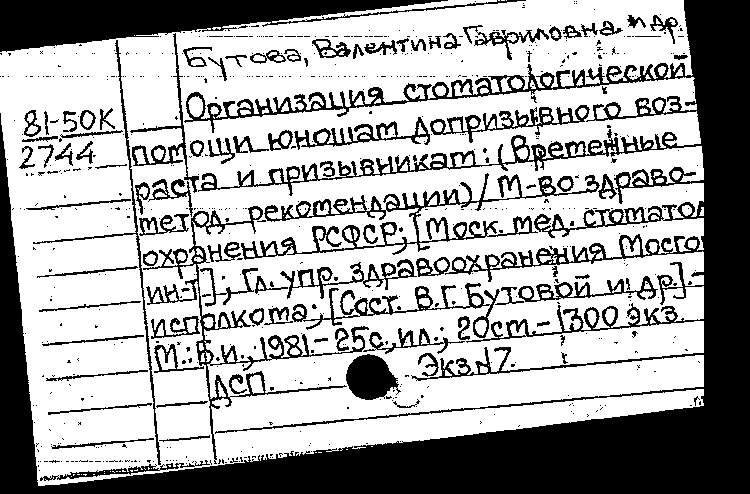 Бутова, Валентина Гавриловна и др.
81-50К
2744
Организация стоматологической
помощи юношам допризывного воз-
раста и призывникам: (Временные
метод. рекомендации) / М-во здраво-
охранения РСФСР; [Моск. мед. стоматол
ин-т]; Гл. упр. здравоохранения Мосго
исполкома; [Сост. В.Г. Бутовой и др].-
М.: Б.и., 1981.- 25с., ил.; 20см.- 1300 экз.
ДСП. Экз.N7.